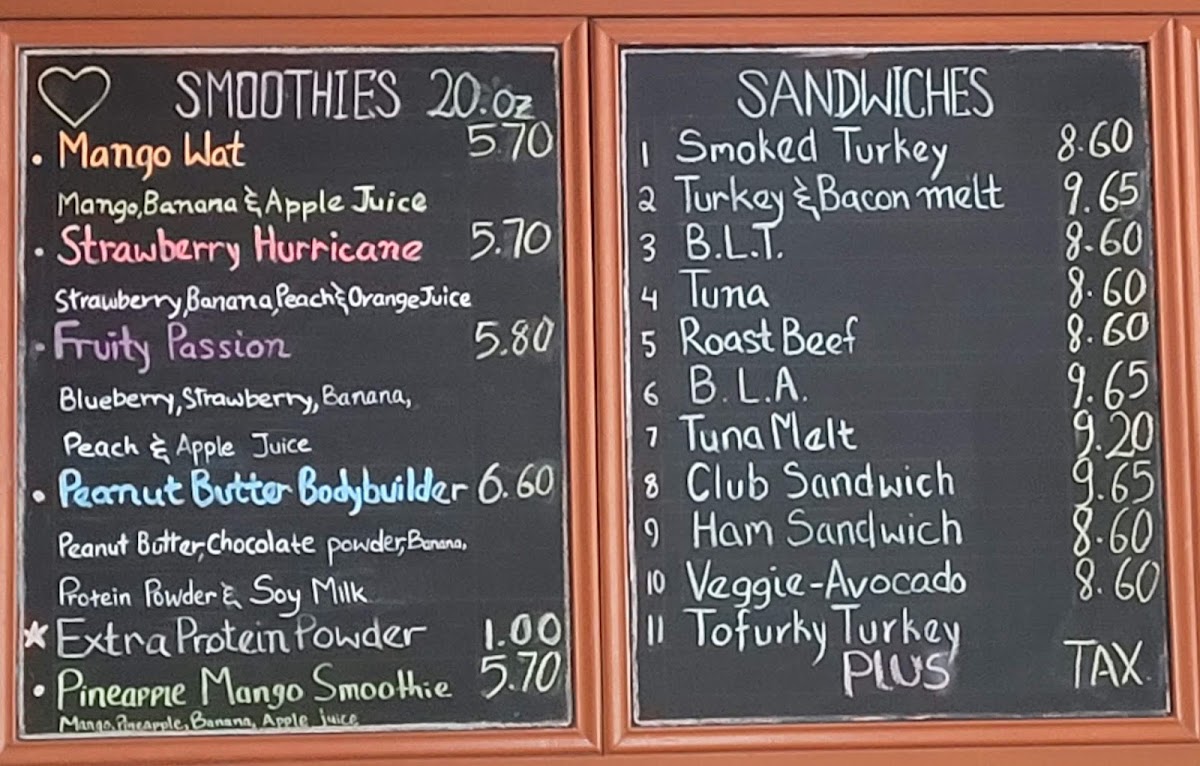 SMOOTHIES 20.oz
• Mango Wat 5.70
Mango, Banana & Apple Juice
• Strawberry Hurricane 5.70
Strawberry, Banana, Peach & Orange Juice
• Fruity Passion 5.80
Blueberry, Strawberry, Banana,
Peach & Apple Juice
• Peanut Butter Bodybuilder 6.60
Peanut Butter, Chocolate powder, Banana,
Protein Powder & Soy Milk
★ Extra Protein Powder 1.00
• Pineapple Mango Smoothie 5.70
Mango, Pineapple, Banana, Apple juice
SANDWICHES
1 Smoked Turkey 8.60
2 Turkey & Bacon melt 9.65
3 B.L.T. 8.60
4 Tuna 8.60
5 Roast Beef 8.60
6 B.L.A. 9.65
7 Tuna Melt 9.20
8 Club Sandwich 9.65
9 Ham Sandwich 8.60
10 Veggie-Avocado 8.60
11 Tofurky Turkey
PLUS TAX